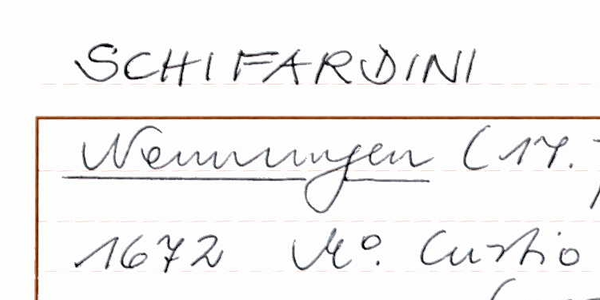 SCHIFARDINI
Nennungen (17.
1672 Mo. Curtio